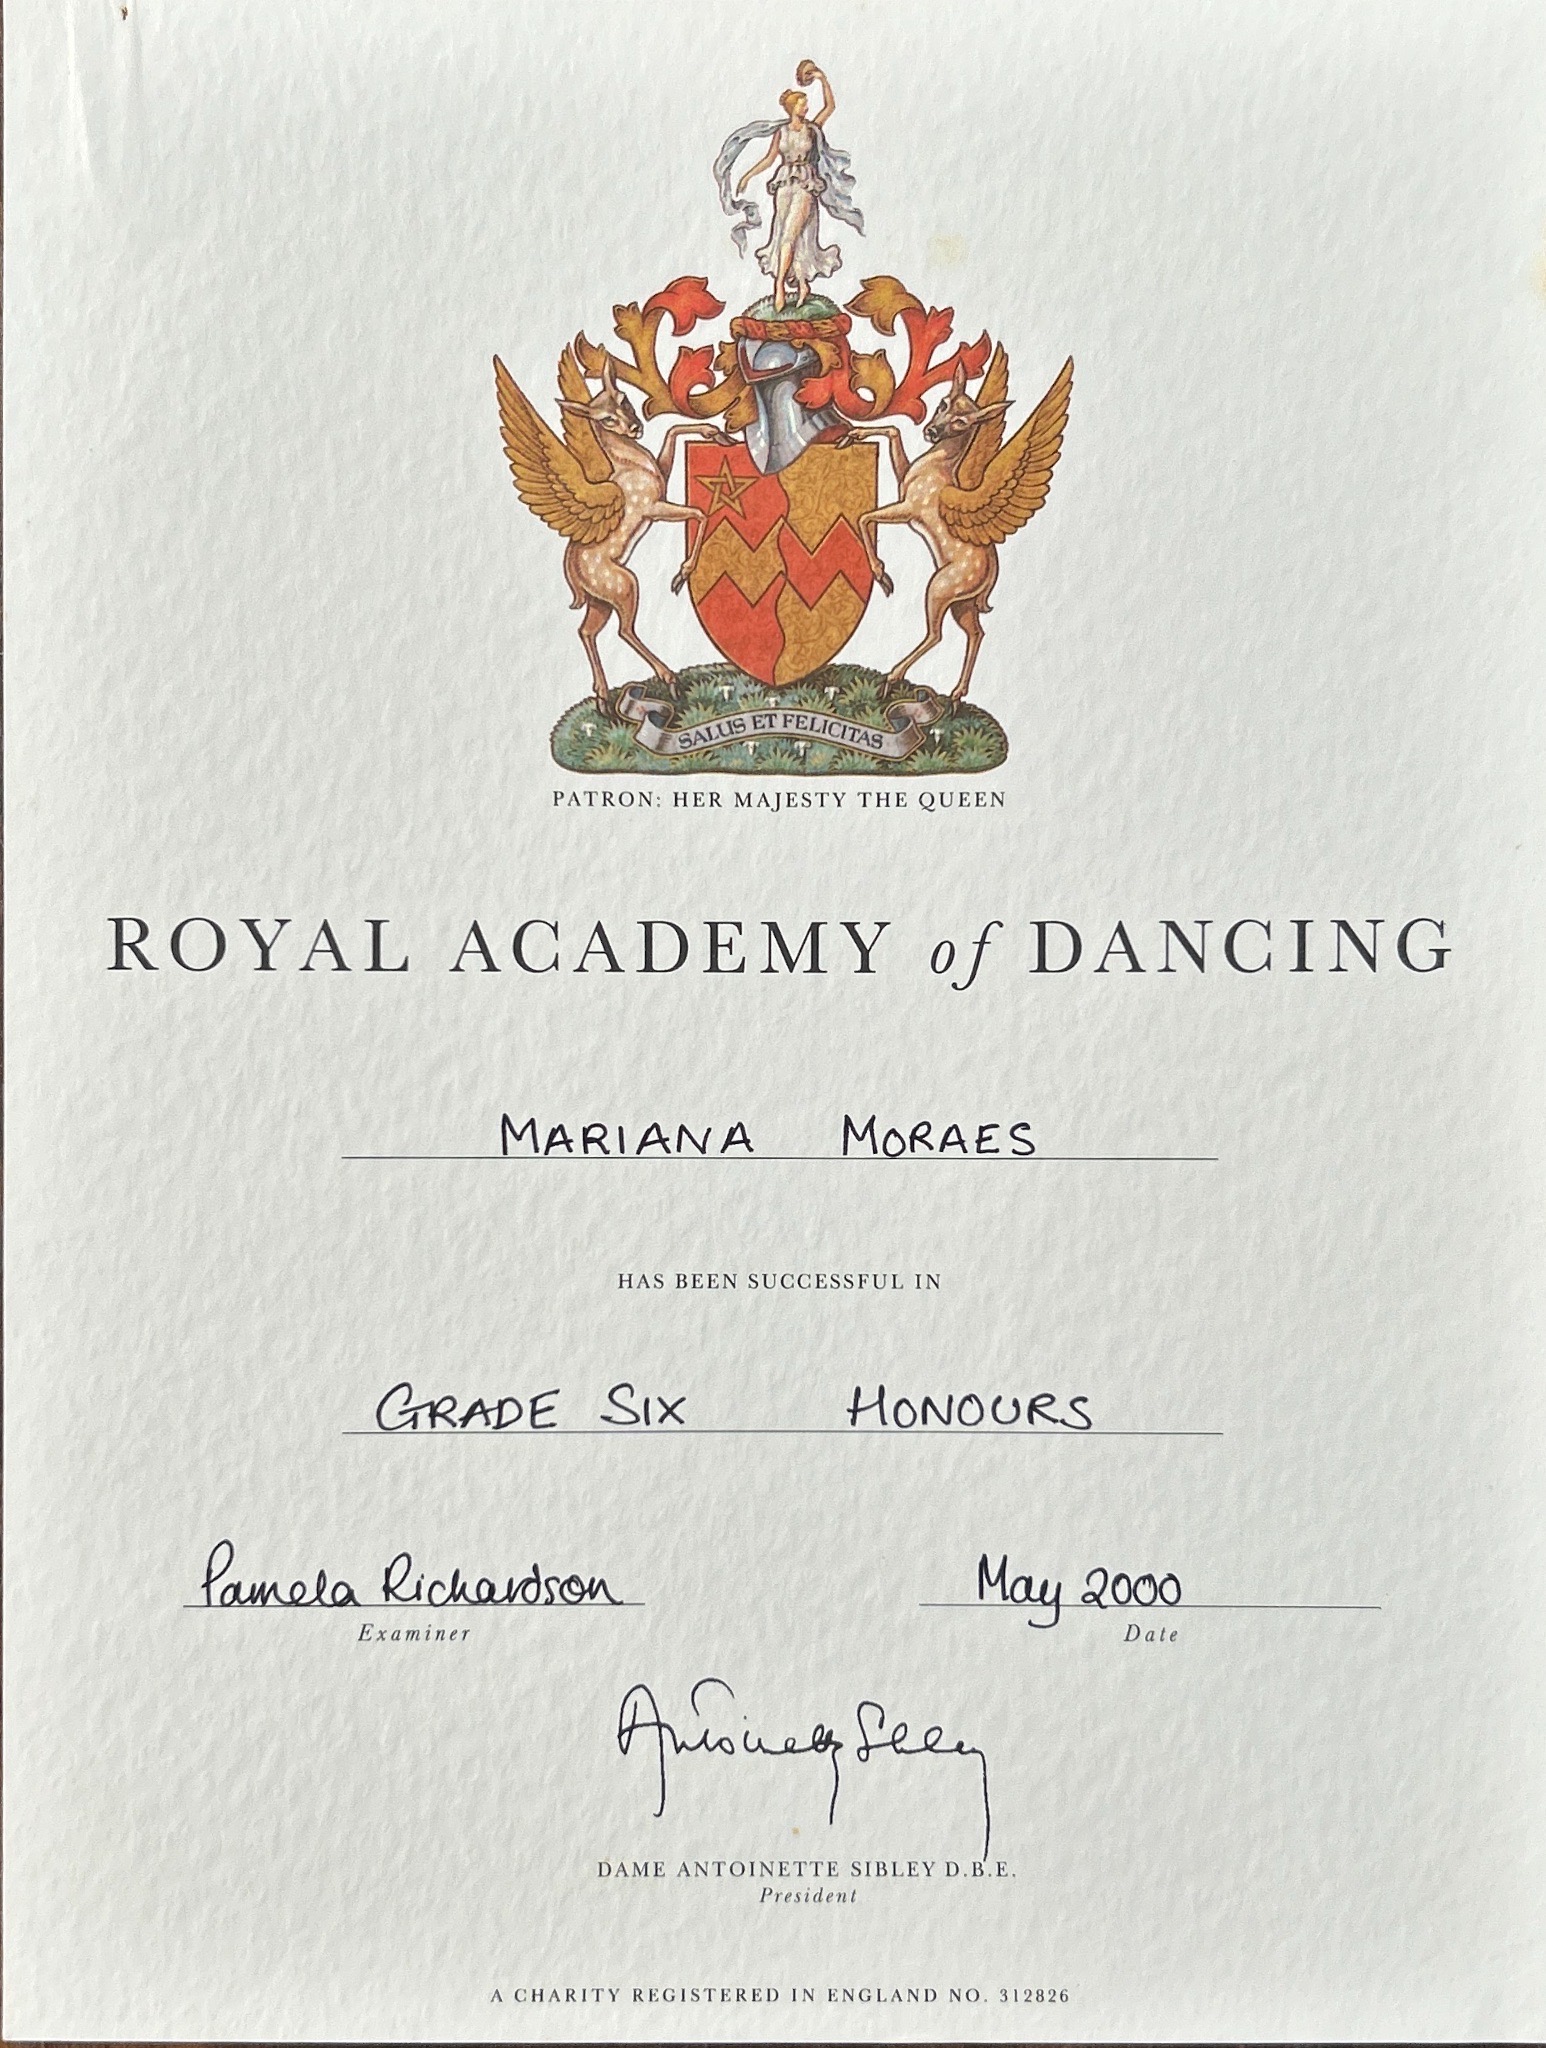 SALUS ET FELICITAS
PATRON: HER MAJESTY THE QUEEN
ROYAL ACADEMY of DANCING
MARIANA MORAES
HAS BEEN SUCCESSFUL IN
GRADE SIX HONOURS
Pamela Richardson May 2000
Examiner Date
Antoinette Sibley
DAME ANTOINETTE SIBLEY D.B.E.
President
A CHARITY REGISTERED IN ENGLAND NO. 312826